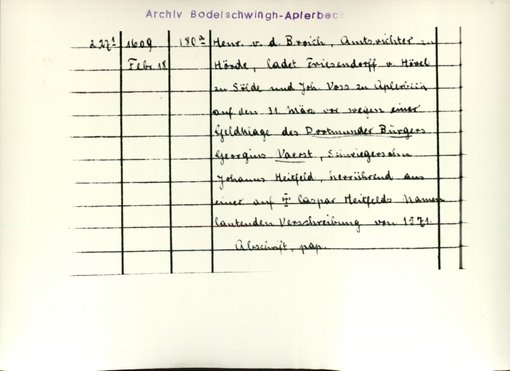 Archiv Bodelschwingh-Aplerbeck
227¹ 1609 180a Henr. v. d. Broich, Amtsrichter zu
Febr 18 Hörde, ladet Friesendorff v. Hövel
zu Sölde und Joh Voss zu Aplerbeck
auf den 31 März vor wegen einer
Geldklage des Dortmunder Bürgers
Georgius Vaerst, Schwiegersohn
Johanns Heitfeld, herrührend aus
einer auf Caspar Heitfelds Namen
lautenden Verschreibung von 1571.
Abschrift, pap.